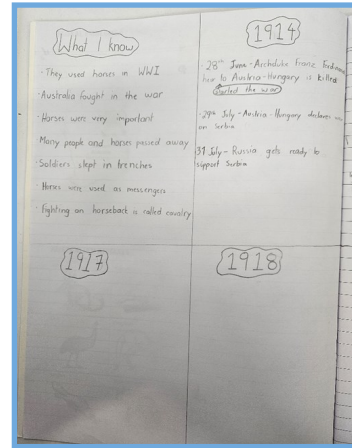 What I know
- They used horses in WWI
- Australia fought in the war
- Horses were very important
Many people and horses passed away
- Soldiers slept in trenches
- Horses were used as messengers
- Fighting on horseback is called cavalry
1914
- 28th June - Archduke Franz Ferdinand
heir to Austria-Hungary is killed
started the war
- 29th July - Austria-Hungary declares war
on Serbia
31 July - Russia gets ready to
support Serbia
1917
1918